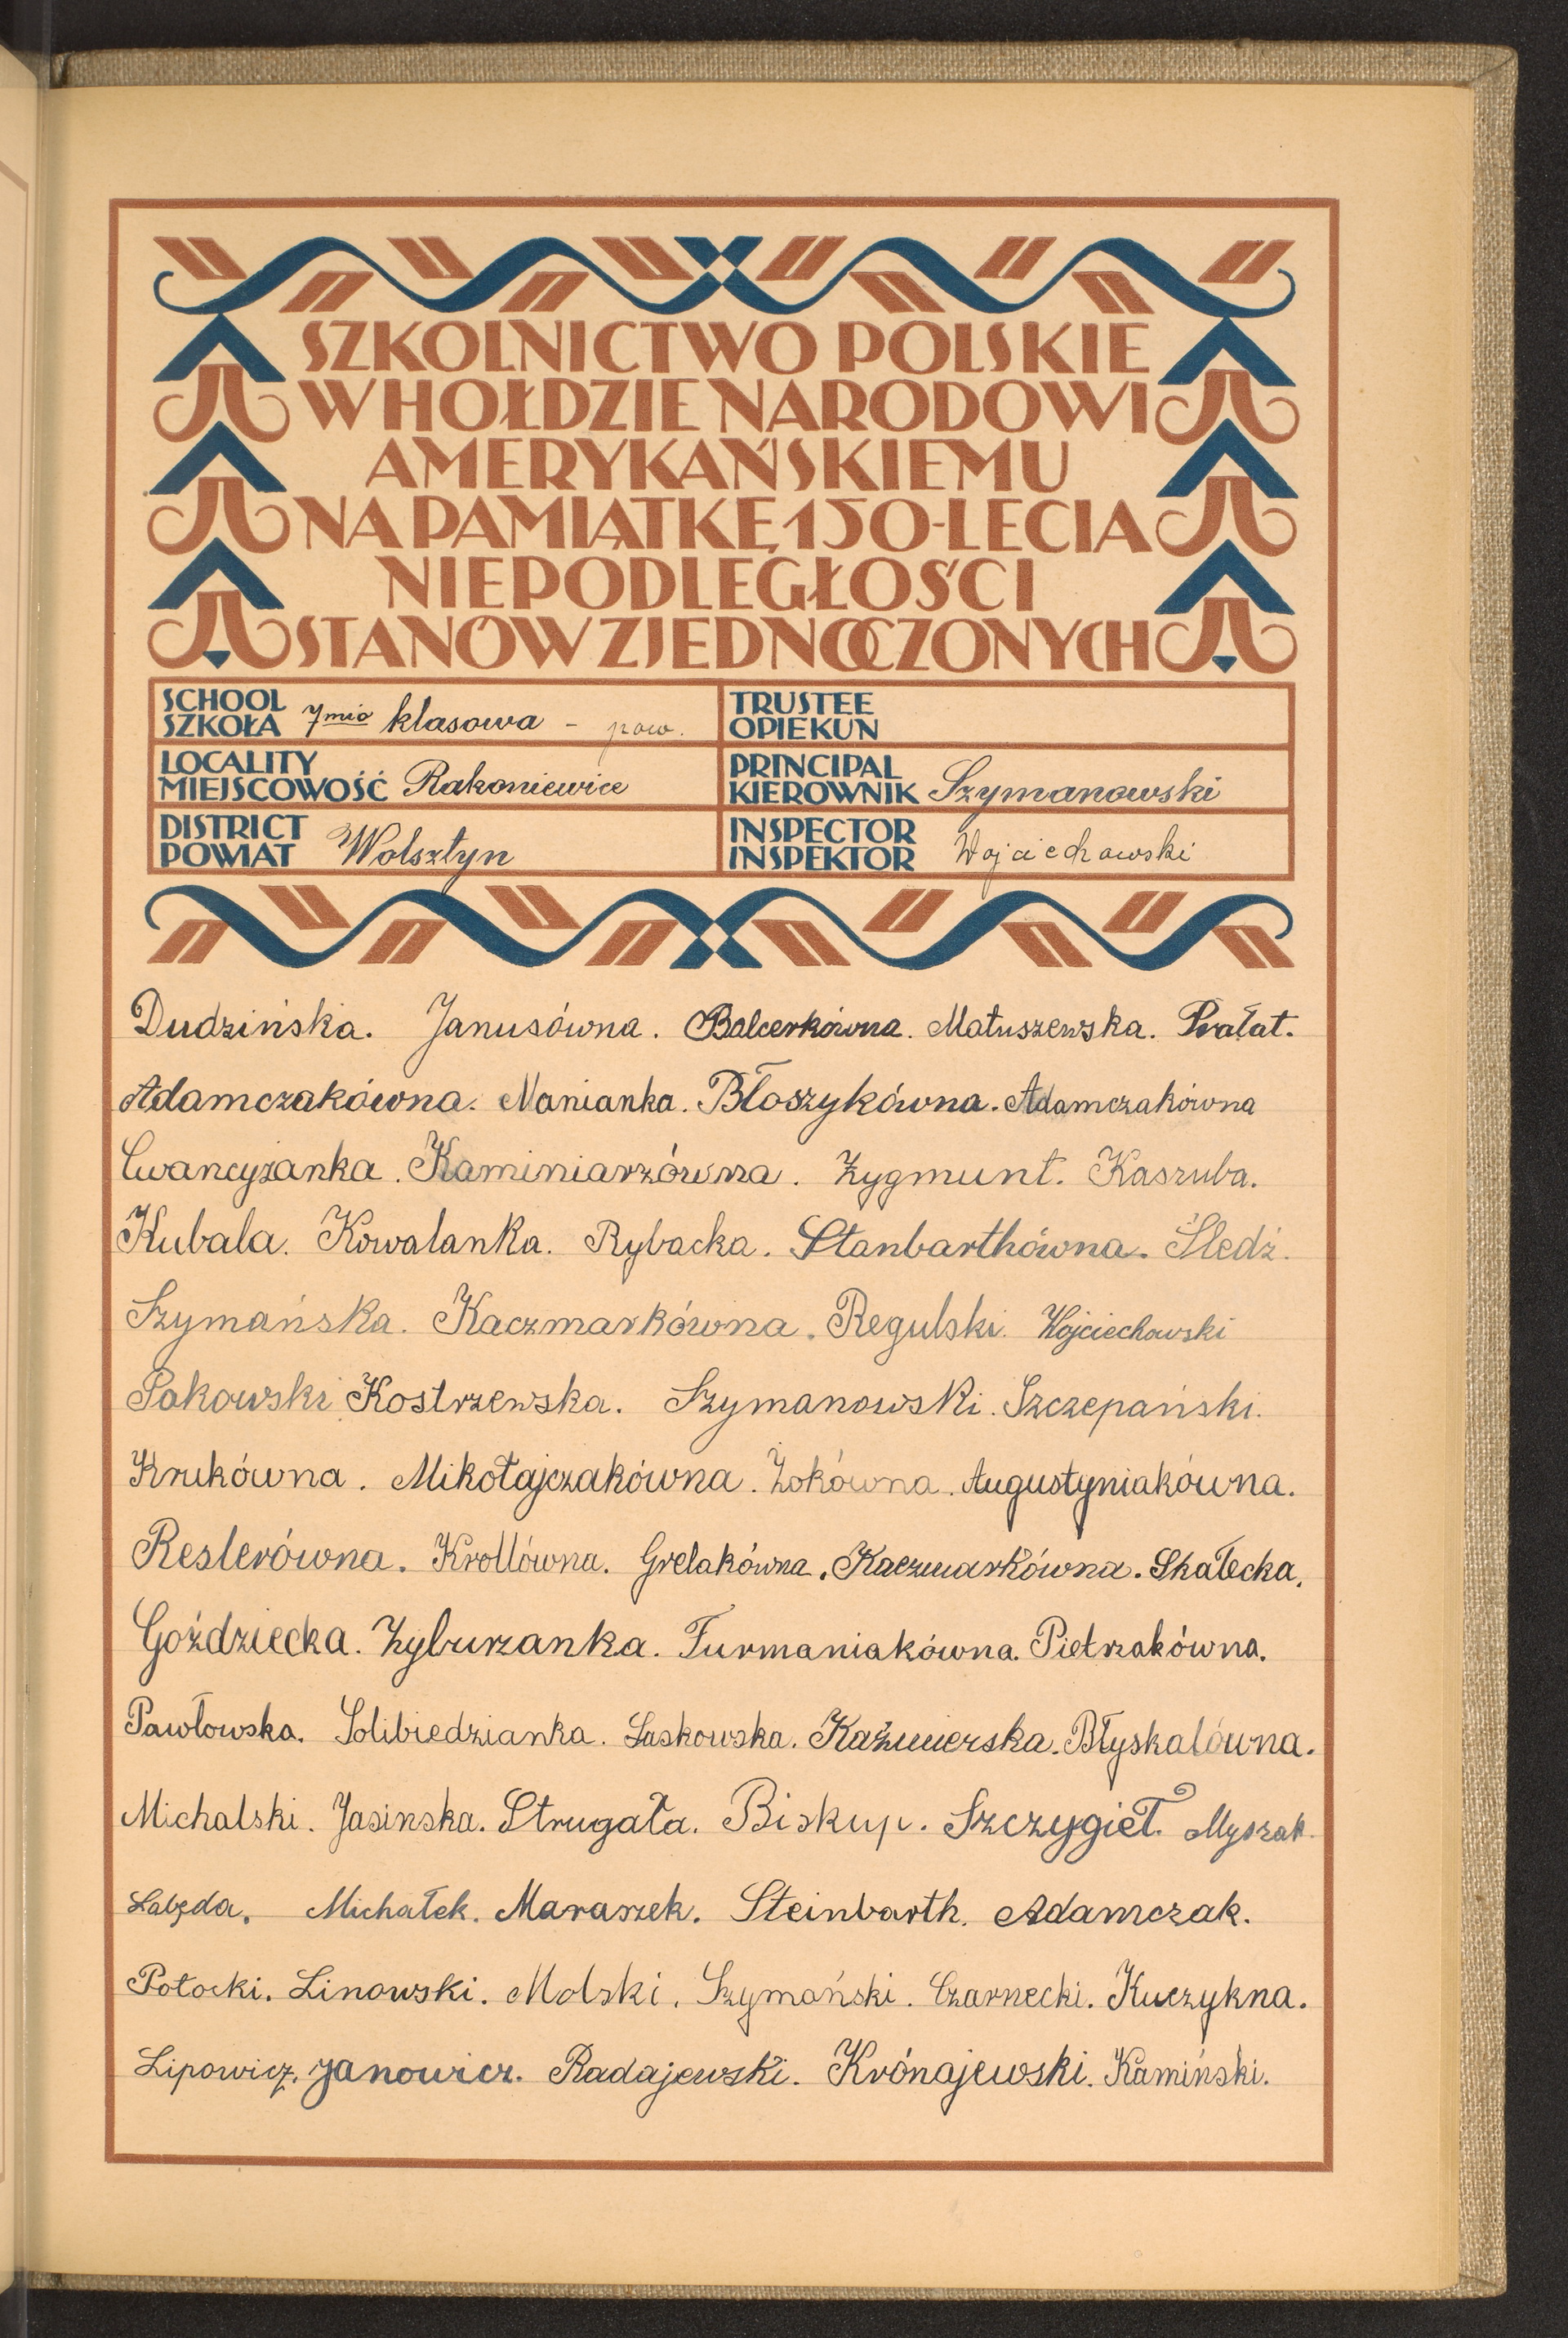 SZKOLNICTWO POLSKIE
W HOŁDZIE NARODOWI
AMERYKAŃSKIEMU
NA PAMIĄTKĘ 150-LECIA
NIEPODLEGŁOŚCI
STANÓW ZJEDNOCZONYCH
SCHOOL
SZKOŁA 7mio klasowa - pow.
TRUSTEE
OPIEKUN
LOCALITY
MIEJSCOWOŚĆ Rakoniewice
PRINCIPAL
KIEROWNIK Szymanowski
DISTRICT
POWIAT Wolsztyn
INSPECTOR
INSPEKTOR Wojciechowski
Dudzińska. Janusówna. Balcerkówna. Matuszewska. Prałat.
Adamczakówna. Manianka. Błoszykówna. Adamczakówna
Cwancyzanka. Kaminiarzówna. Zygmunt. Kaszuba.
Kubala. Kowalanka. Rybacka. Stanbarthówna. Śledź.
Szymańska. Kaczmarkówna. Regulski. Wojciechowski
Pakowski Kostrzewska. Szymanowski. Szczepański.
Krukówna. Mikołajczakówna. Żokówna. Augustyniakówna.
Reslerówna. Krollówna. Grelakówna. Kaczmarkówna. Skałecka.
Goździecka. Zyburzanka. Furmaniakówna. Pietrzakówna.
Pawłowska. Solibiedzianka. Laskowska. Kaźmierska. Błyskalówna.
Michalski. Jasinska. Strugała. Biskup. Szczygieł. Myszak.
Łabęda. Michałek. Maraszek. Steinbarth. Adamczak.
Potocki. Linowski. Molski. Szymański. Czarnecki. Kuczykna.
Lipowicz. Janowicz. Radajewski. Krónajewski. Kamiński.